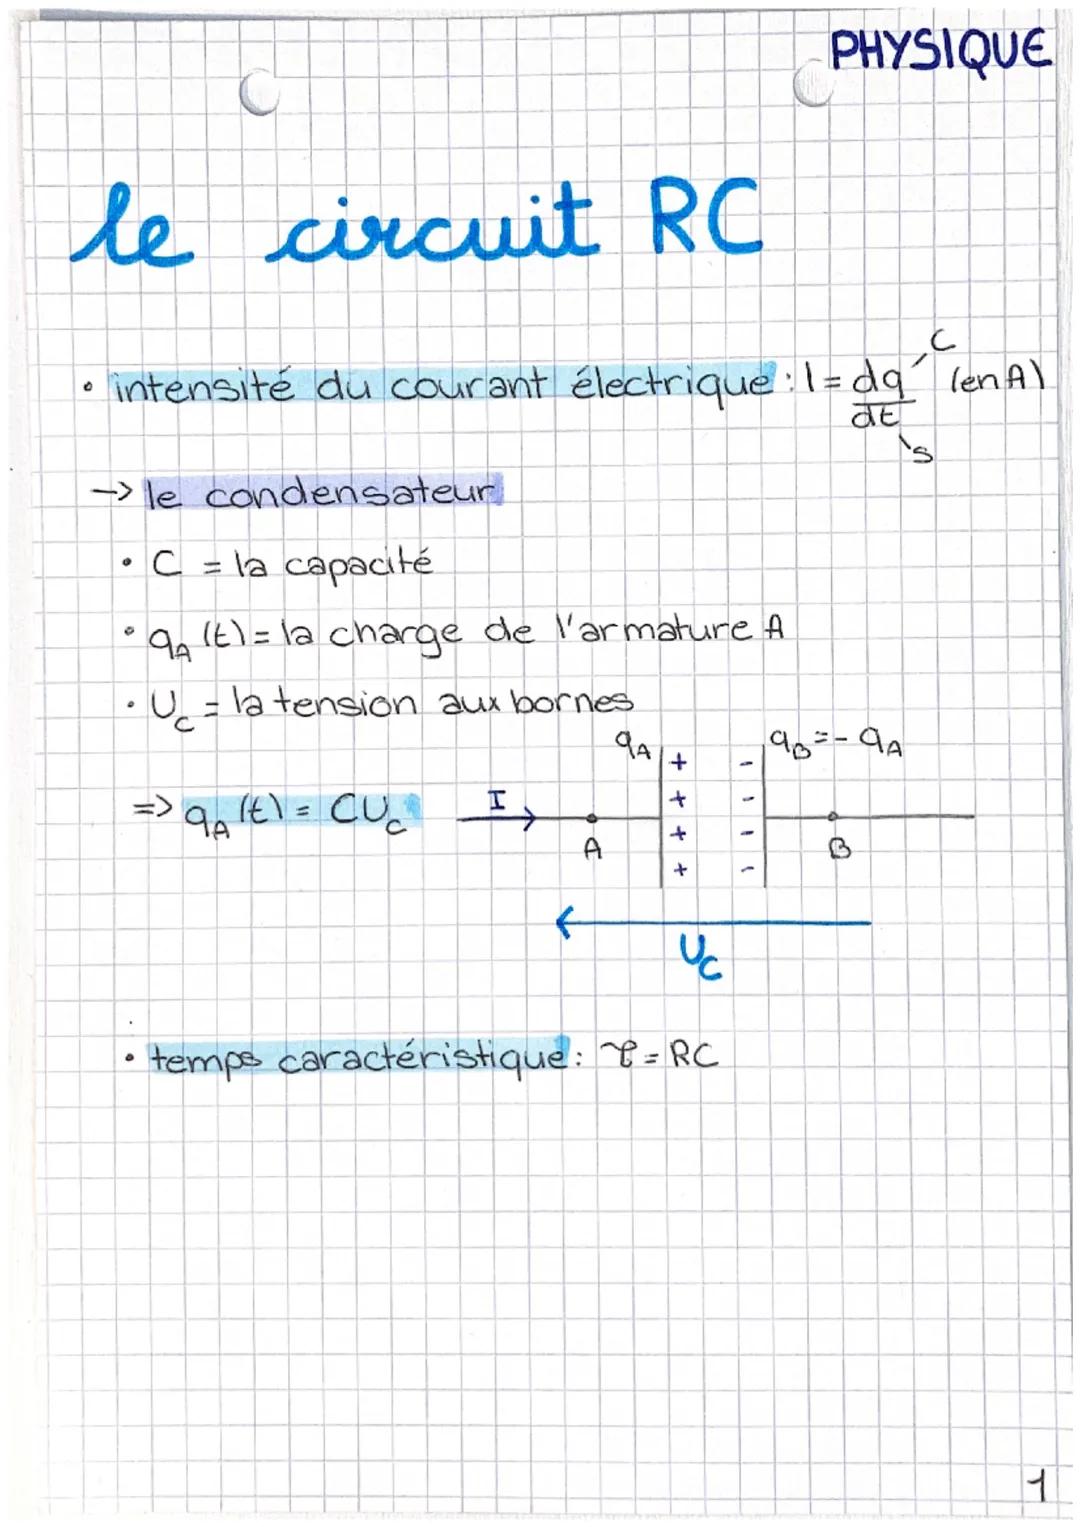 PHYSIQUE
le circuit RC
• intensité du courant électrique : I = dq/dt (en A)
C
s
-> le condensateur
• C = la capacité
• qA (t) = la charge de l'armature A
• Uc = la tension aux bornes
qA + - qB = - qA
=> qA (t) = CUc I + -
+ -
A B
+ -
Uc
• temps caractéristique : τ = RC
1